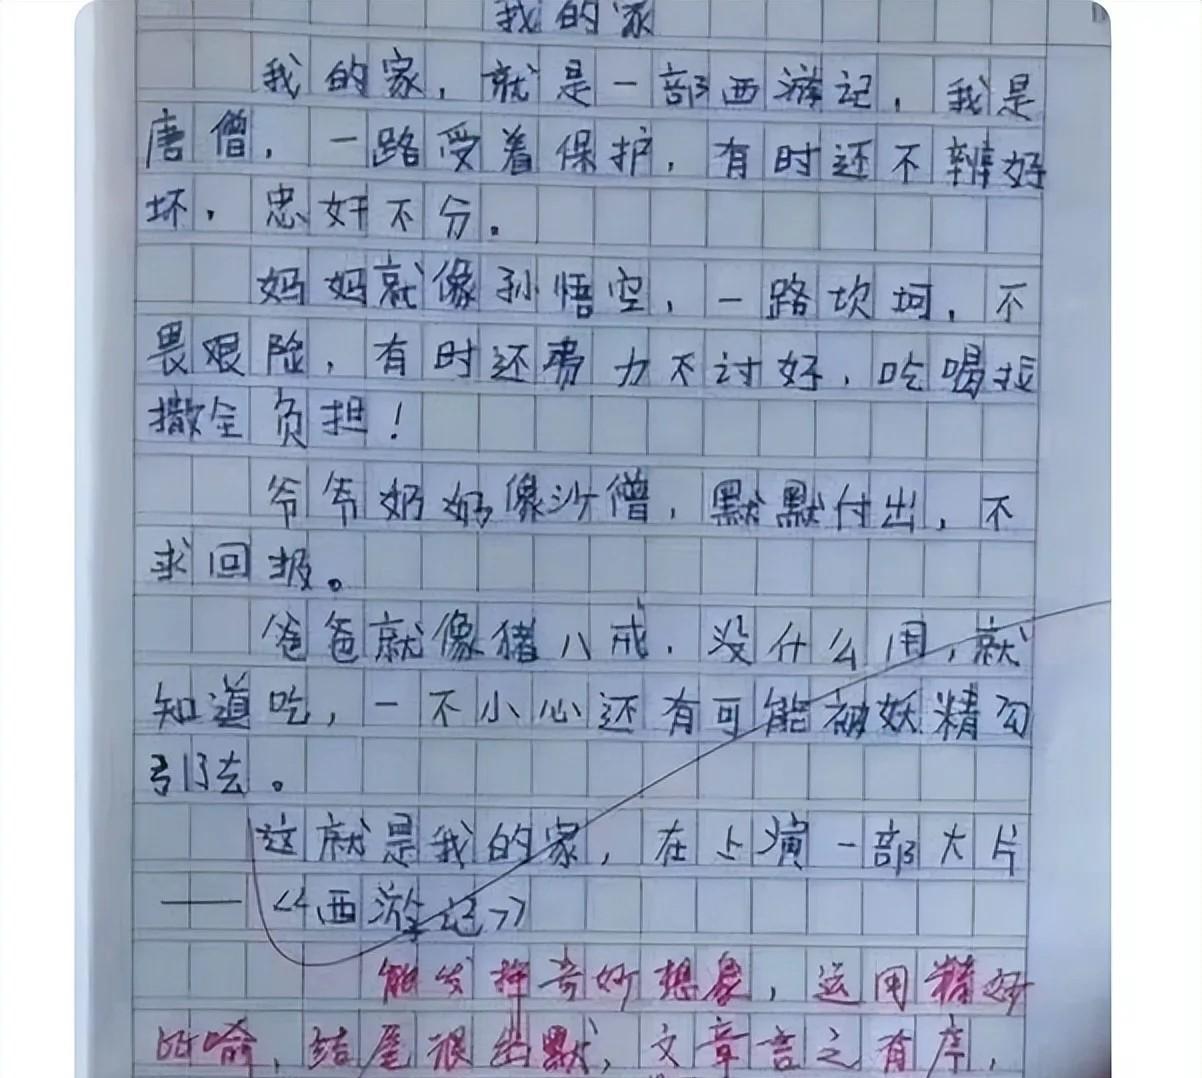 我的家
我的家，就是一部西游记，我是
唐僧，一路受着保护，有时还不辨好
坏，忠奸不分。
妈妈就像孙悟空，一路坎坷，不
畏艰险，有时还费力不讨好，吃喝拉
撒全负担！
爷爷奶奶像沙僧，默默付出，不
求回报。
爸爸就像猪八戒，没什么用，就
知道吃，一不小心还有可能被妖精勾
引去。
这就是我的家，在上演一部大片
——《西游记》
能发挥奇妙想象，运用精妙
比喻，结尾很幽默，文章言之有序，